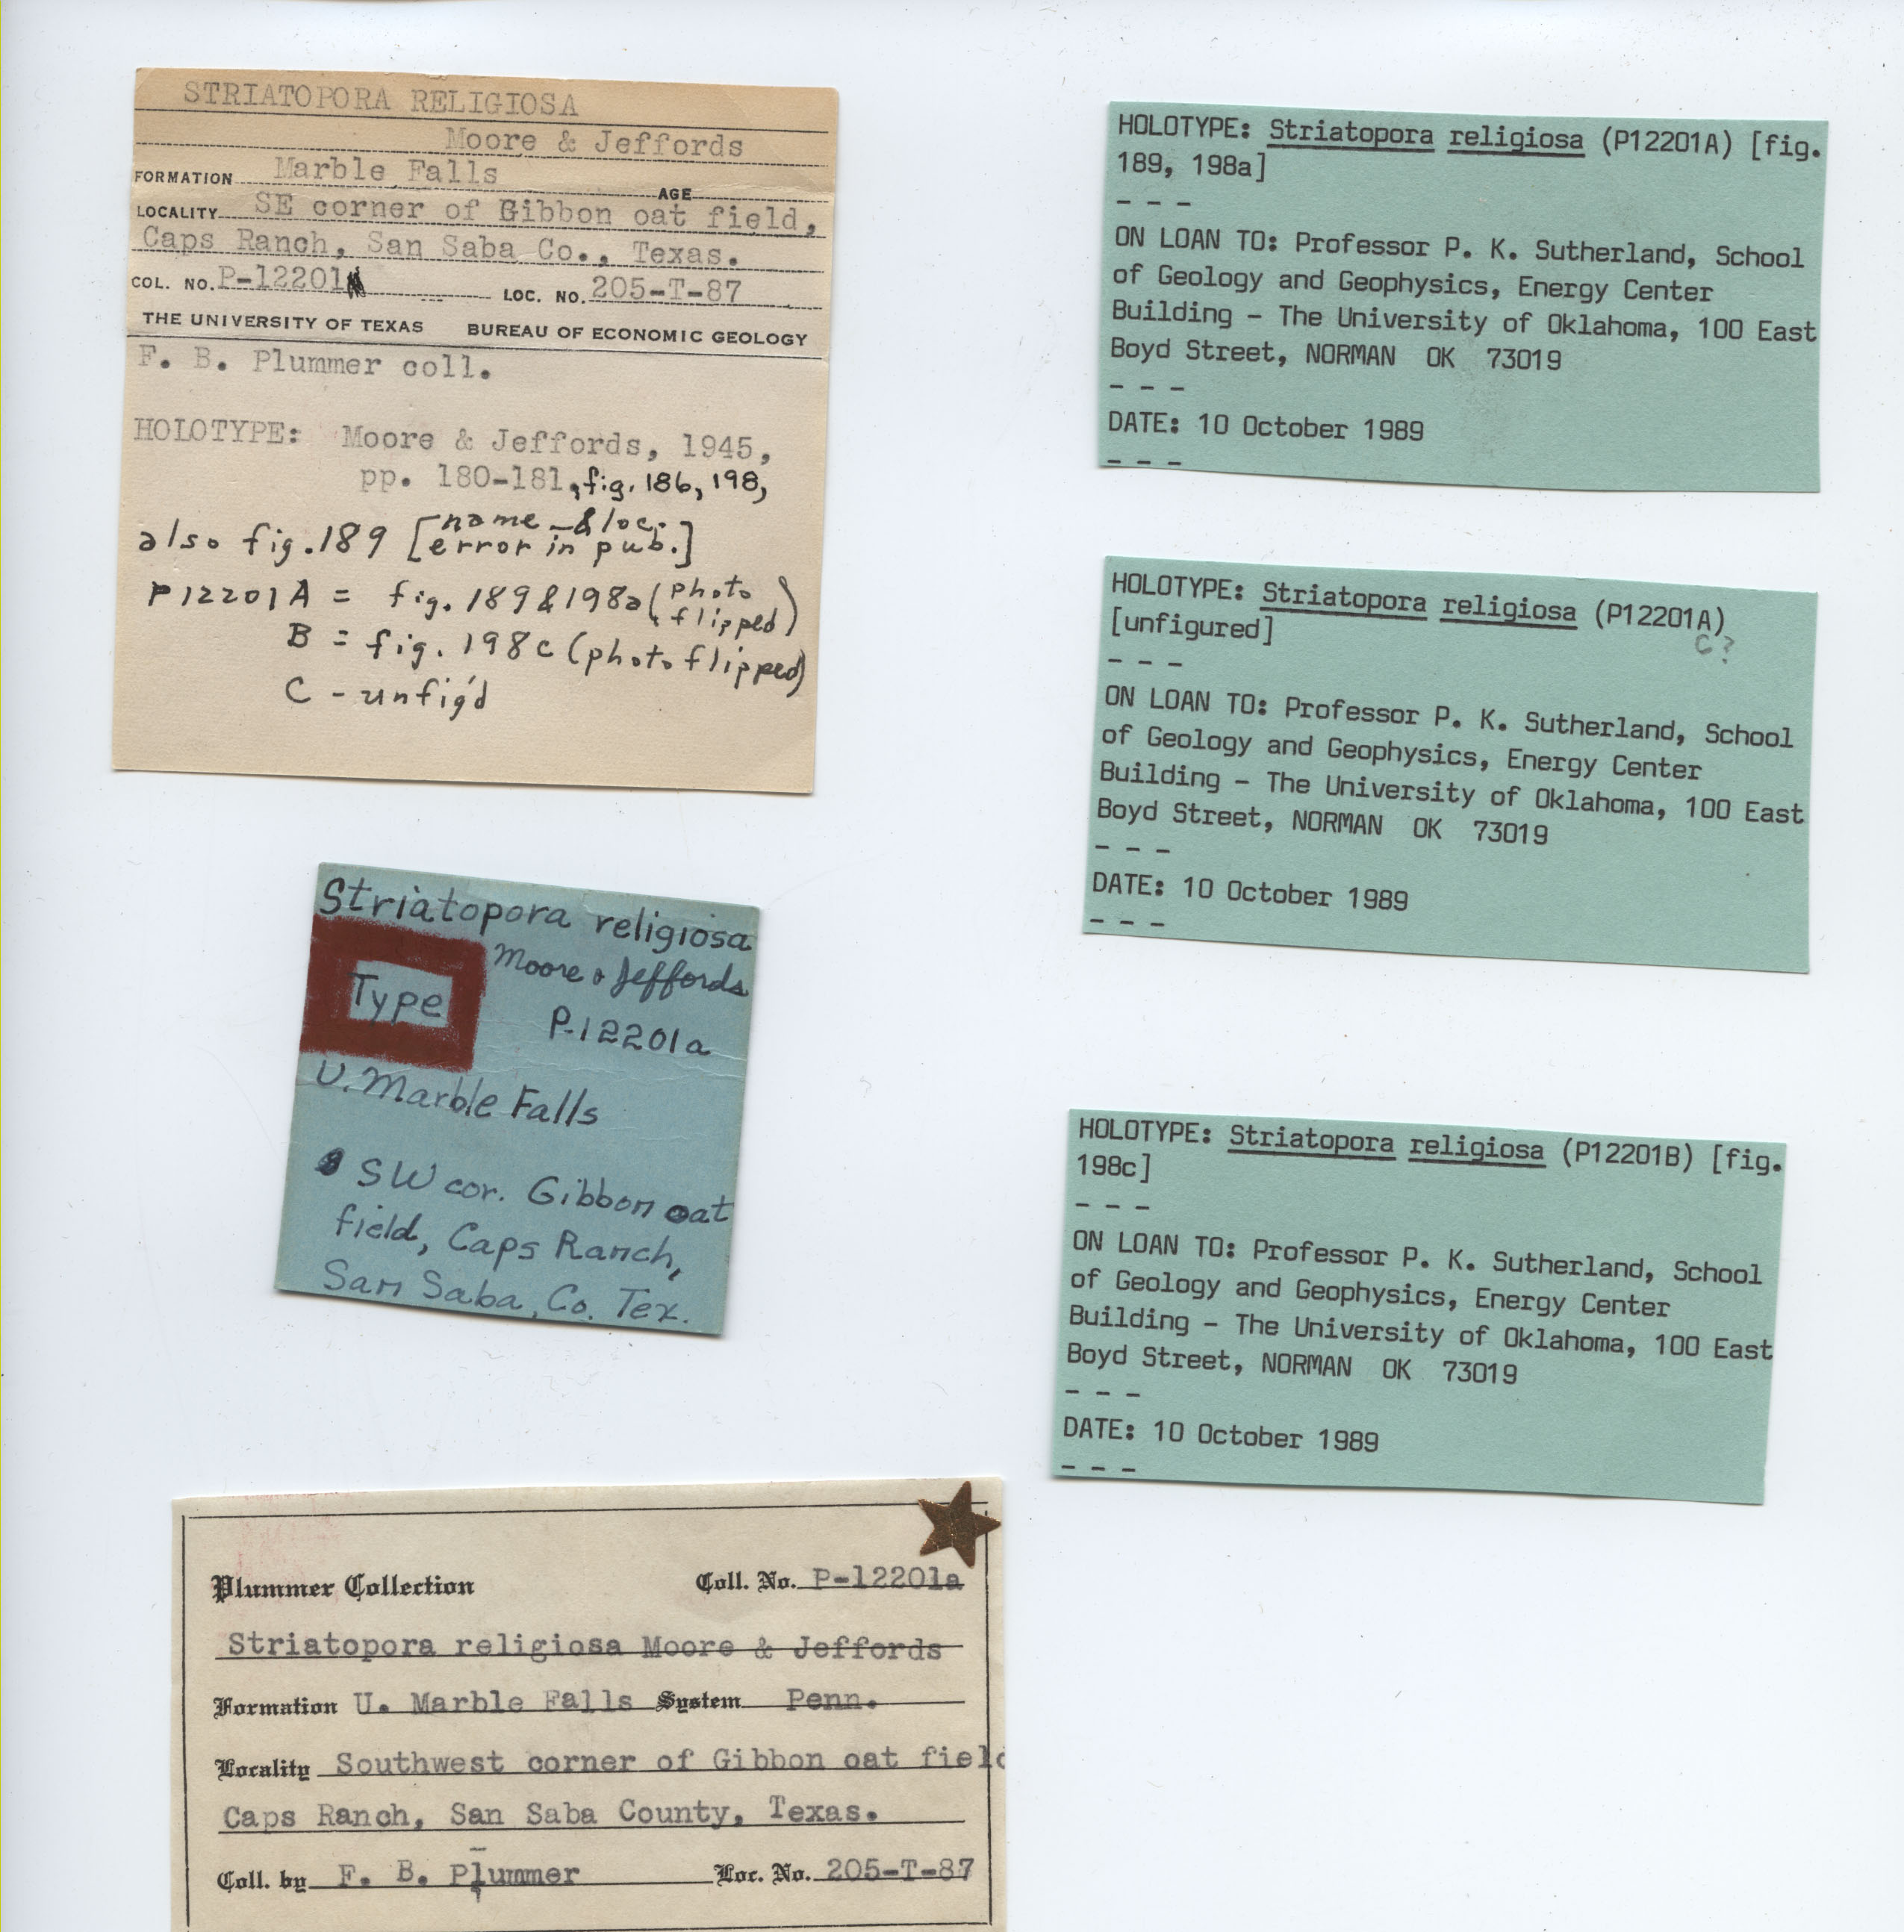 STRIATOPORA RELIGIOSA
Moore & Jeffords
FORMATION Marble Falls AGE
LOCALITY SE corner of Gibbon oat field,
Caps Ranch, San Saba Co., Texas.
COL. NO. P-12201 LOC. NO. 205-T-87
THE UNIVERSITY OF TEXAS BUREAU OF ECONOMIC GEOLOGY
F. B. Plummer coll.
HOLOTYPE: Moore & Jeffords, 1945,
pp. 180-181, fig. 186, 198,
also fig. 189 [name & loc.
error in pub.]
P12201A = fig. 189 & 198a (photo
flipped)
B = fig. 198c (photo flipped)
C - unfig'd
Striatopora religiosa
Moore & Jeffords
Type
P-12201a
U. Marble Falls
SW cor. Gibbon oat
field, Caps Ranch,
San Saba, Co. Tex.
Plummer Collection Coll. No. P-12201a
Striatopora religiosa Moore & Jeffords
Formation U. Marble Falls System Penn.
Locality Southwest corner of Gibbon oat field
Caps Ranch, San Saba County, Texas.
Coll. by F. B. Plummer Loc. No. 205-T-87
HOLOTYPE: Striatopora religiosa (P12201A) [fig.
189, 198a]
- - -
ON LOAN TO: Professor P. K. Sutherland, School
of Geology and Geophysics, Energy Center
Building - The University of Oklahoma, 100 East
Boyd Street, NORMAN OK 73019
- - -
DATE: 10 October 1989
- - -
HOLOTYPE: Striatopora religiosa (P12201A)
[unfigured] C?
- - -
ON LOAN TO: Professor P. K. Sutherland, School
of Geology and Geophysics, Energy Center
Building - The University of Oklahoma, 100 East
Boyd Street, NORMAN OK 73019
- - -
DATE: 10 October 1989
- - -
HOLOTYPE: Striatopora religiosa (P12201B) [fig.
198c]
- - -
ON LOAN TO: Professor P. K. Sutherland, School
of Geology and Geophysics, Energy Center
Building - The University of Oklahoma, 100 East
Boyd Street, NORMAN OK 73019
- - -
DATE: 10 October 1989
- - -